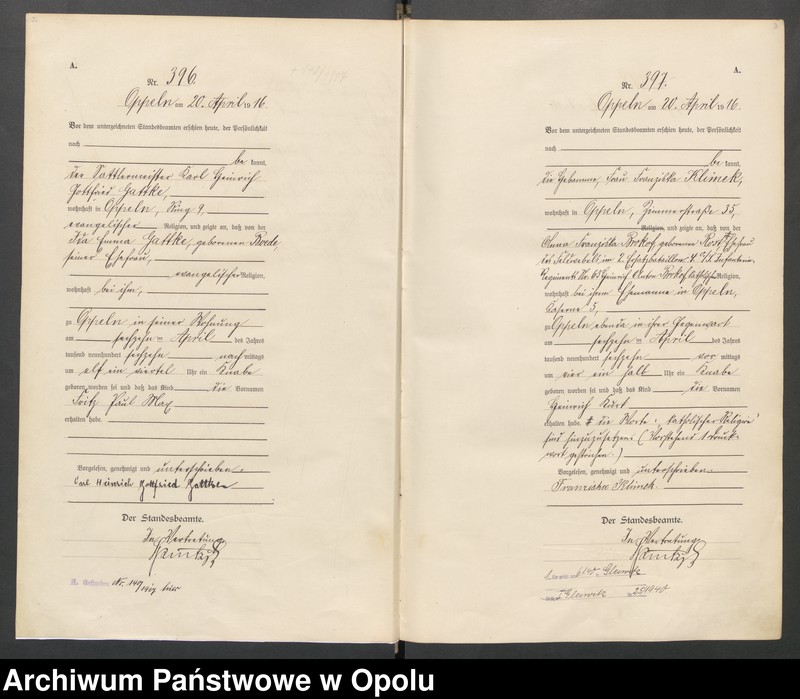 A.
Nr. 396.
Oppeln am 20. April 1916.
Vor dem unterzeichneten Standesbeamten erschien heute, der Persönlichkeit
nach
be kannt,
der Sattlermeister Karl Heinrich
Gottfried Gattke,
wohnhaft in Oppeln, Ring 9,
evangelischer Religion, und zeigte an, daß von der
Ida Emma Gattke, geborenen Bode,
seiner Ehefrau,
evangelischer Religion,
wohnhaft bei ihm,
zu Oppeln in seiner Wohnung
am sechzehnten April des Jahres
tausend neunhundert sechzehn nach mittags
um elf ein viertel Uhr ein Knabe
geboren worden sei und daß das Kind die Vornamen
Fritz Paul Max
erhalten habe.
Vorgelesen, genehmigt und unterschrieben.
Carl Heinrich Gottfried Gattke
Der Standesbeamte.
In Vertretung
A.
Nr. 397.
Oppeln am 20. April 1916.
Vor dem unterzeichneten Standesbeamten erschien heute, der Persönlichkeit
nach
be kannt,
die Hebamme, Frau Franziska Klimek,
wohnhaft in Oppeln, Zimmerstraße 35,
Religion, und zeigte an, daß von der
Anna Franziska Brokof, geborenen Rost, Ehefrau
des Feldwebels im 2. Ersatzbataillon 4. Infanterie-
Regiments Nr. 63 Heinrich Anton Brokof, Religion,
wohnhaft bei ihrem Ehemanne in Oppeln,
Caserne 5,
zu Oppeln ebenda in ihrer Gegenwart
am sechzehnten April des Jahres
tausend neunhundert sechzehn vor mittags
um vier ein halb Uhr ein Knabe
geboren worden sei und daß das Kind die Vornamen
Heinrich Kurt
erhalten habe. ‡ die Worte: "katholischer Religion"
sind hinzuzusetzen. (Vorstehend 1 Druck-
wort gestrichen.)
Vorgelesen, genehmigt und unterschrieben.
Franziska Klimek.
Der Standesbeamte.
In Vertretung
Gleiwitz
Gleiwitz 25 1940
Archiwum Państwowe w Opolu